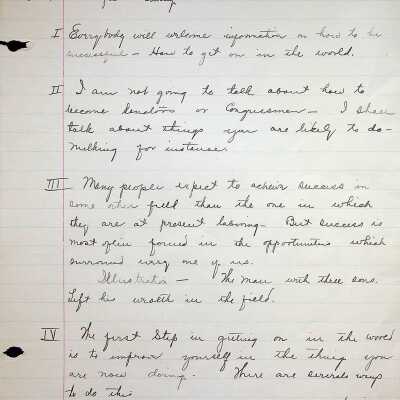 I Everybody will welcome information on how to be
successful - How to get on in the world.
II I am not going to talk about how to
become Senators or Congressmen - I shall
talk about things you are likely to do -
Milking for instance.
III Many people expect to achieve success in
some other field than the one in which
they are at present laboring - But success is
most often found in the opportunities which
surround every one of us.
Illustration - The man with three sons.
Left his wealth in the field.
IV The first Step in getting on in the world
is to improve yourself in the thing you
are now doing. There are several ways
to do this